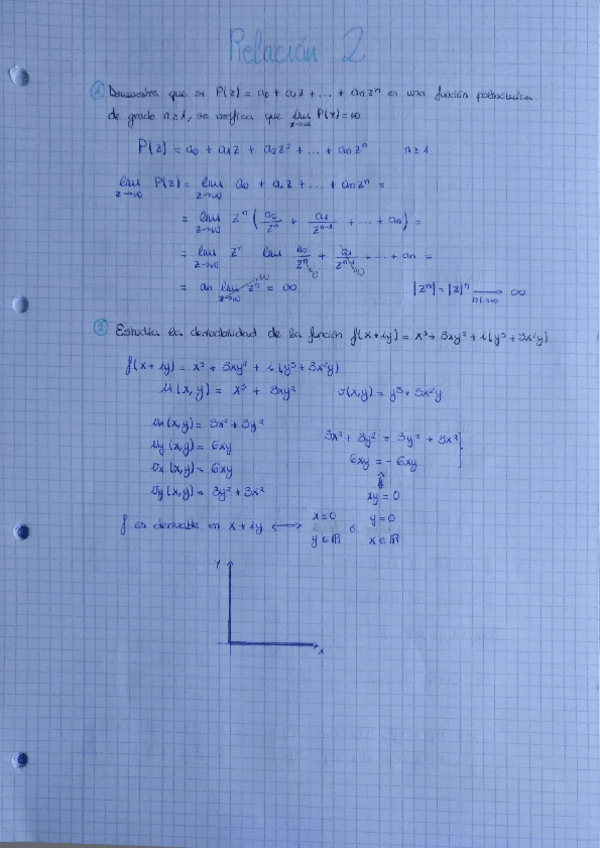 Relación 2
① Demuestra que si P(z) = a₀ + a₁z + ... + aₙzⁿ es una función polinómica
de grado n≥1, se verifica que lim z→∞ P(z) = ∞
P(z) = a₀ + a₁z + a₂z² + ... + aₙzⁿ n≥1
lim z→∞ P(z) = lim z→∞ a₀ + a₁z + ... + aₙzⁿ =
= lim z→∞ zⁿ (a₀/zⁿ + a₁/zⁿ⁻¹ + ... + aₙ) =
= lim z→∞ zⁿ lim a₀/zⁿ + a₁/zⁿ⁻¹ + ... + aₙ =
0 0
= aₙ lim z→∞ zⁿ = ∞ |zⁿ| = |z|ⁿ → ∞
② Estudia la derivabilidad de la función f(x+iy) = x³ + 3xy² + i(y³ + 3x²y)
f(x+iy) = x³ + 3xy² + i(y³ + 3x²y)
u(x,y) = x³ + 3xy² v(x,y) = y³ + 3x²y
ux(x,y) = 3x² + 3y²
uy(x,y) = 6xy
vx(x,y) = 6xy
vy(x,y) = 3y² + 3x²
3x² + 3y² = 3y² + 3x²
6xy = -6xy
xy = 0
f es derivable en x+iy ⟷ x=0 y∈ℝ ó y=0 x∈ℝ
y
x